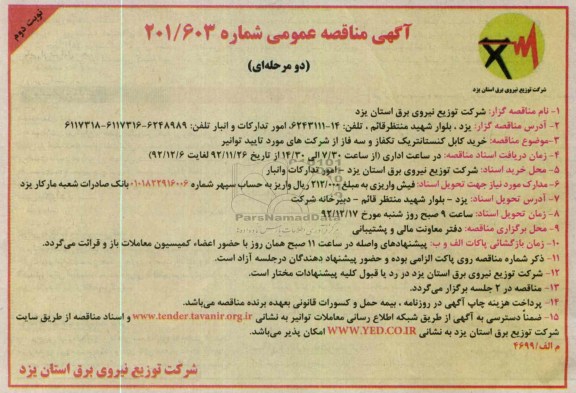 نوبت دوم
آگهی مناقصه عمومی شماره ۲۰۱/۶۰۳
(دو مرحله‌ای)
شرکت توزیع نیروی برق استان یزد
۱- نام مناقصه گزار: شرکت توزیع نیروی برق استان یزد
۲- آدرس مناقصه گزار: یزد ، بلوار شهید منتظرقائم ، تلفن: ۱۴-۶۲۴۳۱۱۱، امور تدارکات و انبار تلفن: ۶۲۴۸۹۸۹-۶۱۱۷۳۱۶-۶۱۱۷۳۱۸
۳- موضوع مناقصه: خرید کابل کنستانتریک تکفاز و سه فاز از شرکت های مورد تایید توانیر
۴- زمان دریافت اسناد مناقصه: در ساعت اداری (از ساعت ۷/۳۰ الی ۱۴/۳۰ از تاریخ ۹۲/۱۱/۲۶ لغایت ۹۲/۱۲/۶)
۵- محل خرید اسناد: شرکت توزیع نیروی برق استان یزد - امور تدارکات وانبار
۶- مدارک مورد نیاز جهت تحویل اسناد: فیش واریزی به مبلغ ۲۱۲/۰۰۰ ریال واریز به حساب سپهر شماره ۰۱۰۱۸۲۲۹۱۶۰۰۶ بانک صادرات شعبه مارکار یزد
۷- آدرس تحویل اسناد: یزد - بلوار شهید منتظر قائم - دبیرخانه شرکت
۸- زمان تحویل اسناد: ساعت ۹ صبح روز شنبه مورخ ۹۲/۱۲/۱۷
۹- محل برگزاری مناقصه: دفتر معاونت مالی و پشتیبانی
۱۰- زمان بازگشائی پاکات الف و ب: پیشنهادهای واصله در ساعت ۱۱ صبح همان روز با حضور اعضاء کمیسیون معاملات باز و قرائت می‌گردد.
۱۱- ذکر شماره مناقصه روی پاکت الزامی بوده و حضور پیشنهاد دهندگان درجلسه آزاد است.
۱۲- شرکت توزیع نیروی برق استان یزد در رد یا قبول کلیه پیشنهادات مختار است.
۱۳- مناقصه در ۲ جلسه برگزار می‌گردد.
۱۴- پرداخت هزینه چاپ آگهی در روزنامه ، بیمه حمل و کسورات قانونی بعهده برنده مناقصه می‌باشد.
۱۵- ضمناً دسترسی به آگهی از طریق شبکه اطلاع رسانی معاملات توانیر به نشانی www.tender.tavanir.org.ir و اسناد مناقصه از طریق سایت
شرکت توزیع نیروی برق استان یزد به نشانی WWW.YED.CO.IR امکان پذیر می‌باشد.
م الف/۴۶۹۹
شرکت توزیع نیروی برق استان یزد
ParsNamadData